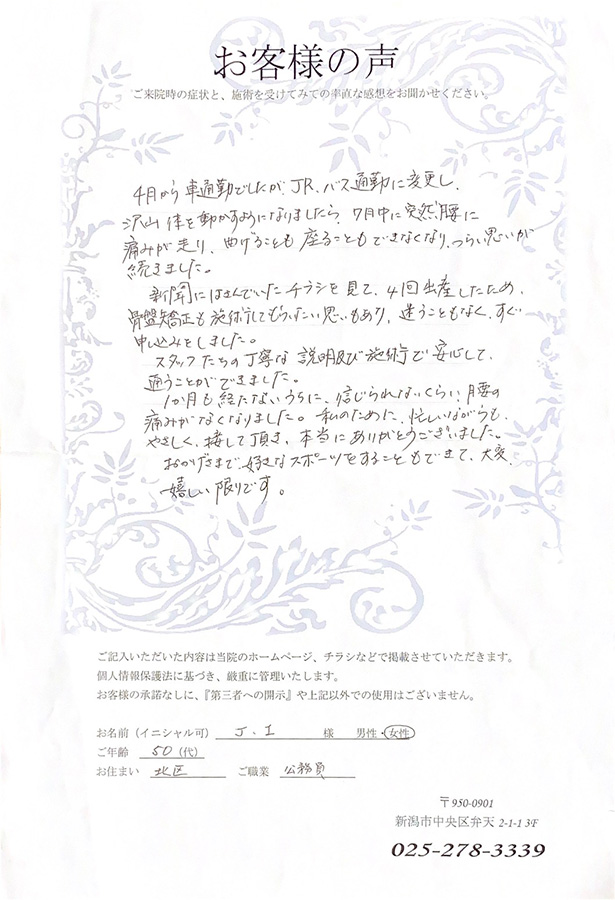 お客様の声
ご来院時の症状と、施術を受けてみての率直な感想をお聞かせください。
4月から車通勤でしたが、JR、バス通勤に変更し、
沢山体を動かすめになりましたら、7月中に突然腰に
痛みが走り、曲げることも座ることもできなくなり、つらい思いが
続きました。
新聞にはさんでいたチラシを見て、4回出産したため、
骨盤矯正も施術してもらいたい思いもあり、迷うこともなく、すぐ
申込みをしました。
スタッフたちの丁寧な説明及び施術で安心して、
通うことができました。
1か月も経たないうちに、信じられないくらい、腰の
痛みがなくなりました。私のために、忙しいながらも、
やさしく、接して頂き、本当にありがとうございました。
おかげさまで、好きなスポーツをすることもできて、大変、
嬉しい限りです。
ご記入いただいた内容は当院のホームページ、チラシなどで掲載させていただきます。
個人情報保護法に基づき、厳重に管理いたします。
お客様の承諾なしに、『第三者への開示』や上記以外での使用はございません。
お名前（イニシャル可） J.I 様 男性・女性
ご年齢 50（代）
お住まい 北区 ご職業 公務員
〒950-0901
新潟市中央区弁天 2-1-1 3F
025-278-3339